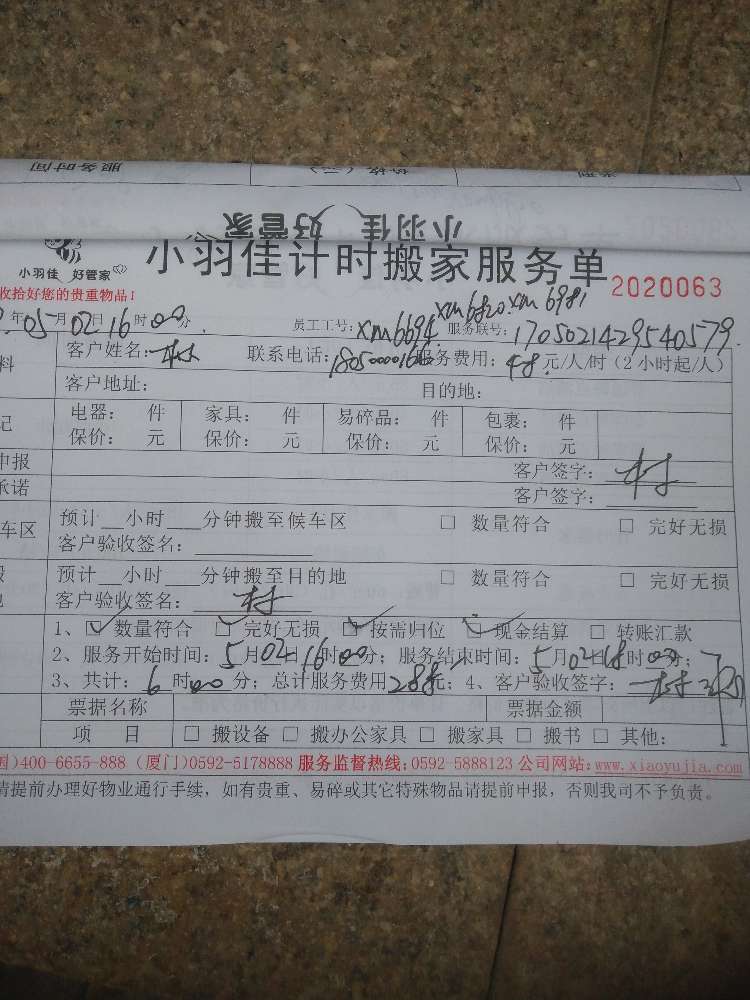 服务时间
好管家
小羽佳
小羽佳 好管家
小羽佳计时搬家服务单 2020063
收拾好您的贵重物品!
年05月02日16时00分 员工工号:xm6694 xm6820 xm6981 服务联号:1705021429540579
料 客户姓名: 联系电话: 服务费用:48元/人/时(2小时起/人)
客户地址: 目的地:
记 电器: 件 家具: 件 易碎品: 件 包裹: 件
保价: 元 保价: 元 保价: 元 保价: 元
申报 客户签字:
承诺 客户签字:
车区 预计__小时___分钟搬至候车区 □ 数量符合 □ 完好无损
客户验收签名:
预计__小时___分钟搬至目的地 □ 数量符合 □ 完好无损
客户验收签名:
1、☑数量符合 ☑完好无损 ☑按需归位 ☑现金结算 □转账汇款
2、服务开始时间:5月02日16时00分;服务结束时间:5月02日18时00分;
3、共计:6时00分;总计服务费用288元;4、客户验收签字:
票据名称 票据金额
项 目 □搬设备 □搬办公家具 □搬家具 □搬书 □其他:
国)400-6655-888 (厦门)0592-5178888 服务监督热线:0592-5888123 公司网站:www.xiaoyujia.com
请提前办理好物业通行手续,如有贵重、易碎或其它特殊物品请提前申报,否则我司不予负责。